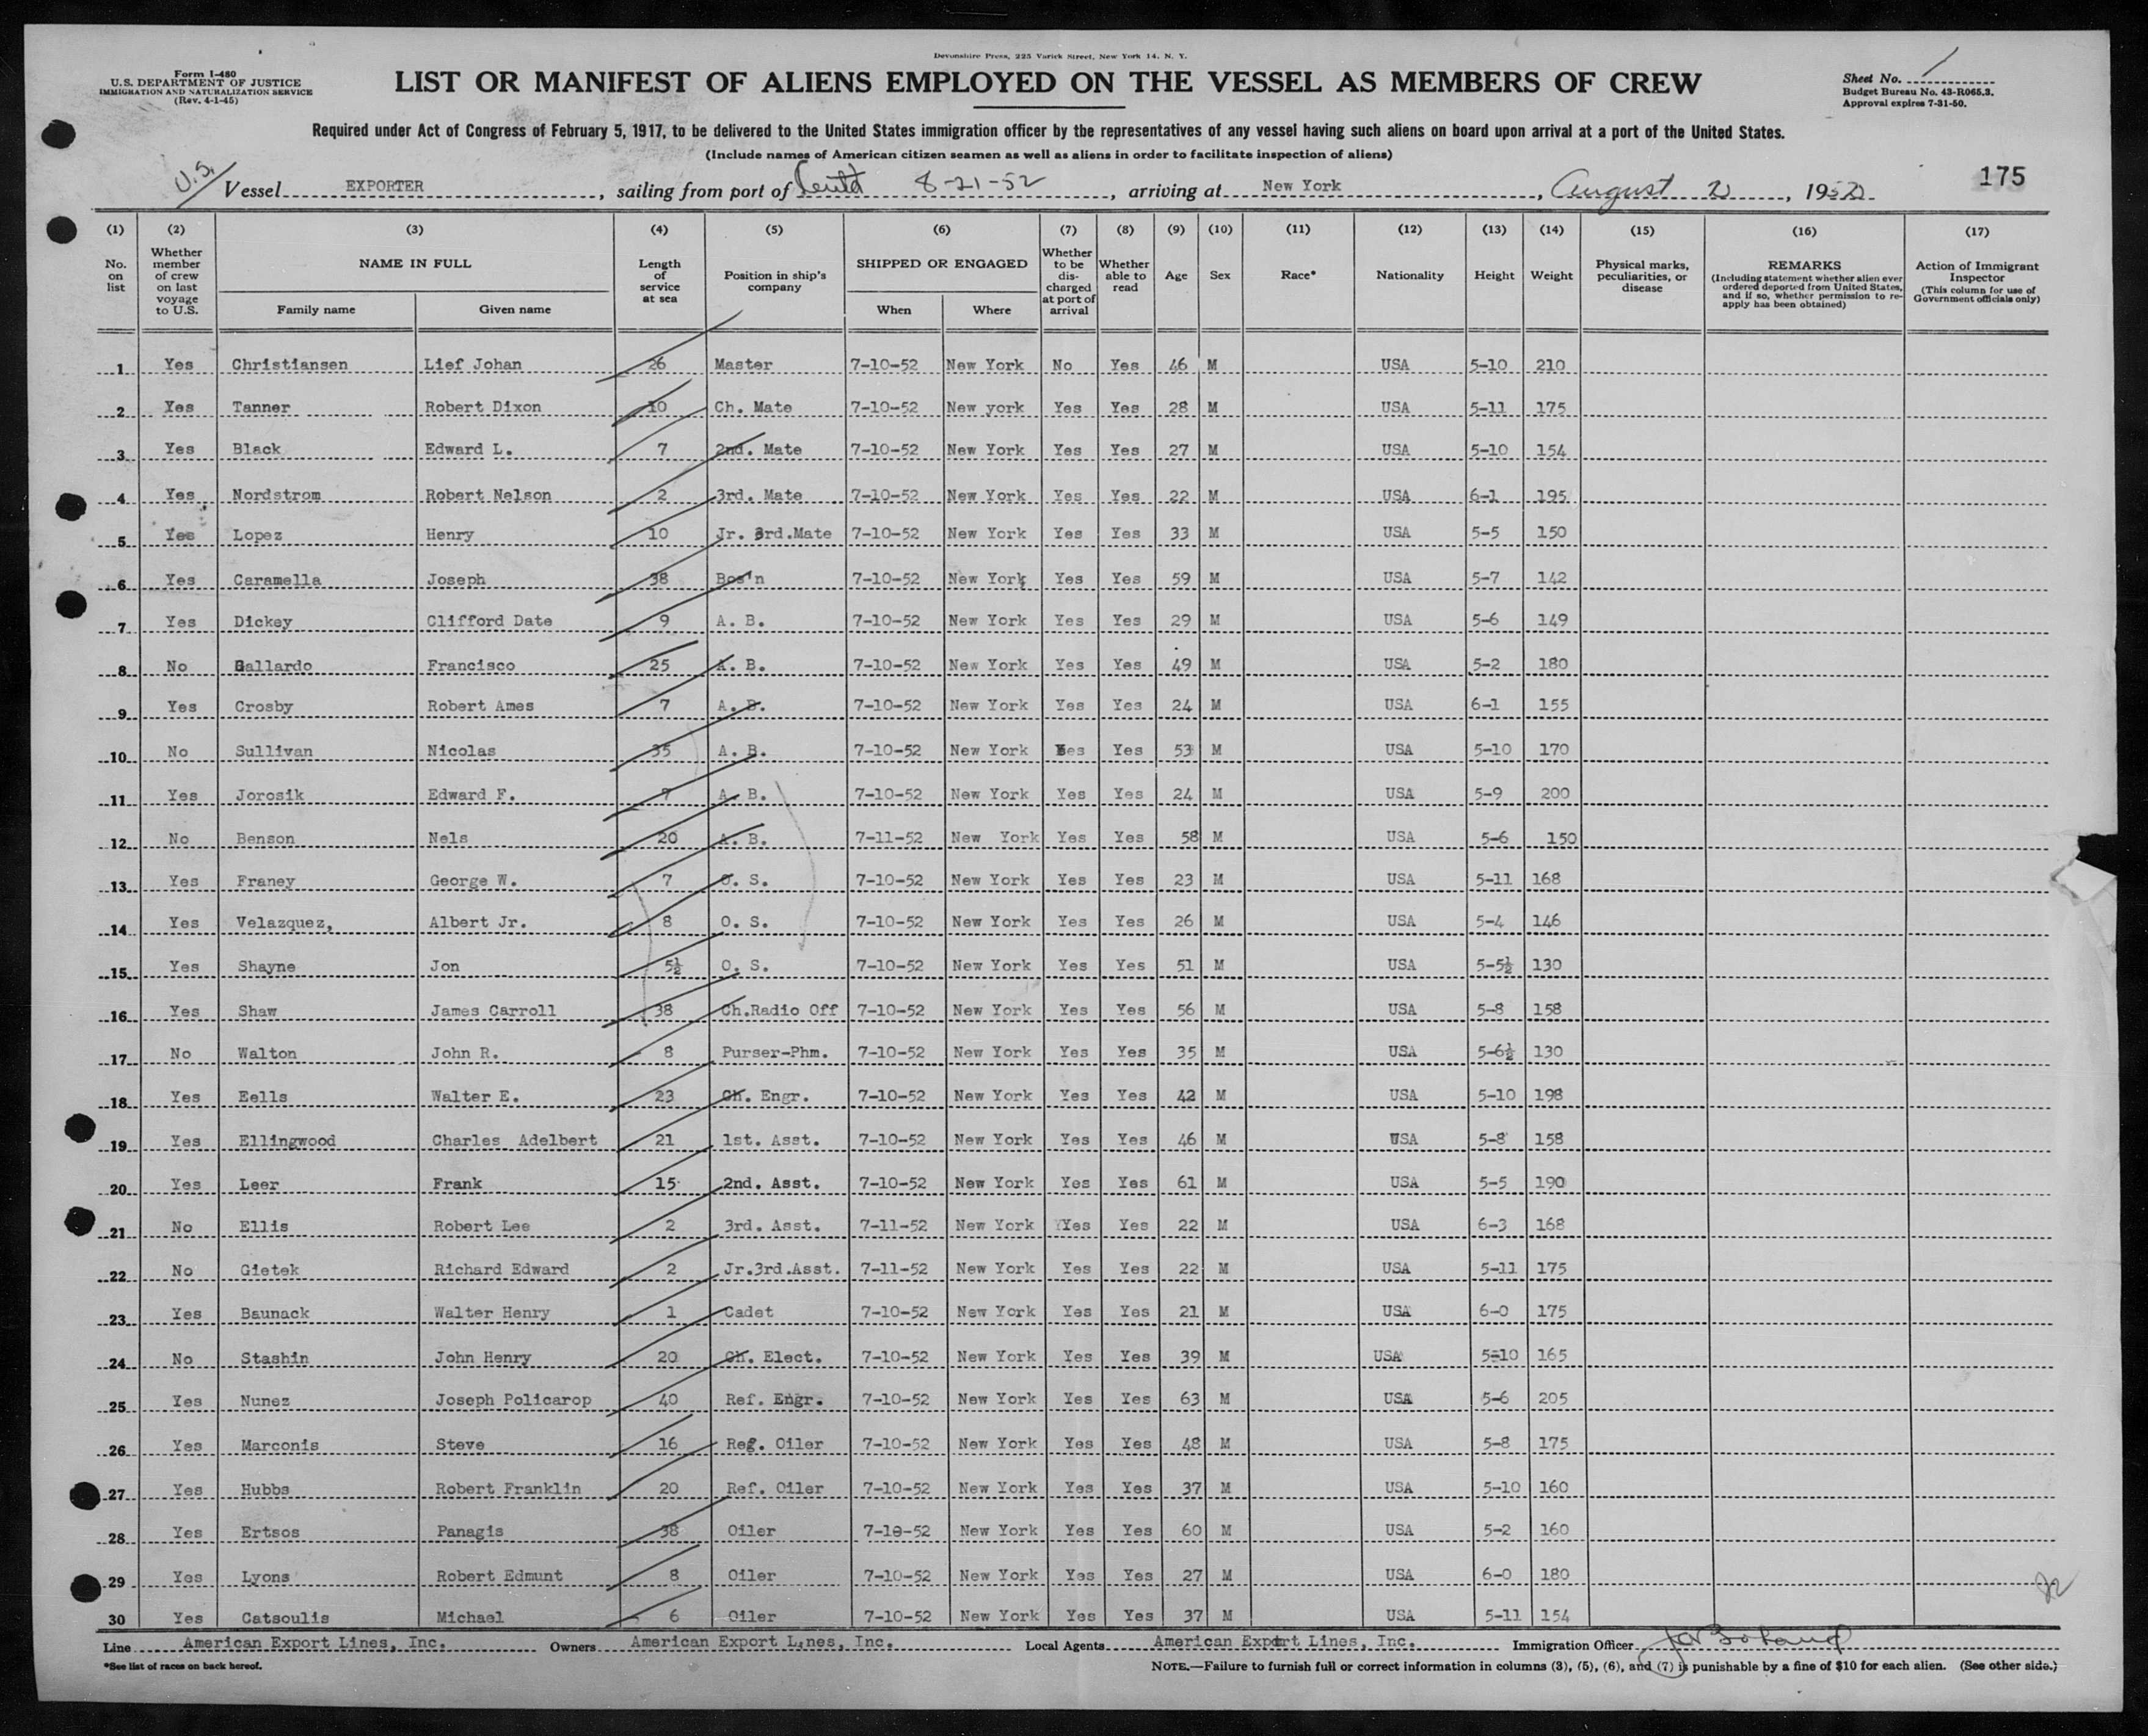 Devonshire Press, 225 Varick Street, New York 14, N. Y.
Form I-480
U.S. DEPARTMENT OF JUSTICE
IMMIGRATION AND NATURALIZATION SERVICE
(Rev. 4-1-45)
LIST OR MANIFEST OF ALIENS EMPLOYED ON THE VESSEL AS MEMBERS OF CREW
Sheet No. 1
Budget Bureau No. 43-R065.3.
Approval expires 7-31-50.
Required under Act of Congress of February 5, 1917, to be delivered to the United States immigration officer by the representatives of any vessel having such aliens on board upon arrival at a port of the United States.
(Include names of American citizen seamen as well as aliens in order to facilitate inspection of aliens)
175
U.S. Vessel EXPORTER, sailing from port of 8-21-52, arriving at New York, August 1952
(1) (2) (3) (4) (5) (6) (7) (8) (9) (10) (11) (12) (13) (14) (15) (16) (17)
No. on list Whether member of crew on last voyage to U.S. NAME IN FULL Family name Given name Length of service at sea Position in ship's company SHIPPED OR ENGAGED When Where Whether to be discharged at port of arrival Whether able to read Age Sex Race* Nationality Height Weight Physical marks, peculiarities, or disease REMARKS (Including statement whether alien ever ordered deported from United States, and if so, whether permission to reapply has been obtained) Action of Immigrant Inspector (This column for use of Government officials only)
1 Yes Christiansen Lief Johan 26 Master 7-10-52 New York No Yes 46 M USA 5-10 210
2 Yes Tanner Robert Dixon 10 Ch. Mate 7-10-52 New york Yes Yes 28 M USA 5-11 175
3 Yes Black Edward L. 7 2nd. Mate 7-10-52 New York Yes Yes 27 M USA 5-10 154
4 Yes Nordstrom Robert Nelson 2 3rd. Mate 7-10-52 New York Yes Yes 22 M USA 6-1 195
5 Yes Lopez Henry 10 Jr. 3rd.Mate 7-10-52 New York Yes Yes 33 M USA 5-5 150
6 Yes Caramella Joseph 38 Bos'n 7-10-52 New York Yes Yes 59 M USA 5-7 142
7 Yes Dickey Clifford Date 9 A. B. 7-10-52 New York Yes Yes 29 M USA 5-6 149
8 No Gallardo Francisco 25 A. B. 7-10-52 New York Yes Yes 49 M USA 5-2 180
9 Yes Crosby Robert Ames 7 A. B. 7-10-52 New York Yes Yes 24 M USA 6-1 155
10 No Sullivan Nicolas 35 A. B. 7-10-52 New York Yes Yes 53 M USA 5-10 170
11 Yes Jorosik Edward F. 7 A. B. 7-10-52 New York Yes Yes 24 M USA 5-9 200
12 No Benson Nels 20 A. B. 7-11-52 New York Yes Yes 58 M USA 5-6 150
13 Yes Franey George W. 7 O. S. 7-10-52 New York Yes Yes 23 M USA 5-11 168
14 Yes Velazquez, Albert Jr. 8 O. S. 7-10-52 New York Yes Yes 26 M USA 5-4 146
15 Yes Shayne Jon 5½ O. S. 7-10-52 New York Yes Yes 51 M USA 5-5½ 130
16 Yes Shaw James Carroll 38 Ch.Radio Off 7-10-52 New York Yes Yes 56 M USA 5-8 158
17 No Walton John R. 8 Purser-Phm. 7-10-52 New York Yes Yes 35 M USA 5-6½ 130
18 Yes Eells Walter E. 23 Ch. Engr. 7-10-52 New York Yes Yes 42 M USA 5-10 198
19 Yes Ellingwood Charles Adelbert 21 1st. Asst. 7-10-52 New York Yes Yes 46 M USA 5-8 158
20 Yes Leer Frank 15 2nd. Asst. 7-10-52 New York Yes Yes 61 M USA 5-5 190
21 No Ellis Robert Lee 2 3rd. Asst. 7-11-52 New York Yes Yes 22 M USA 6-3 168
22 No Gietek Richard Edward 2 Jr.3rd.Asst. 7-11-52 New York Yes Yes 22 M USA 5-11 175
23 Yes Baunack Walter Henry 1 Cadet 7-10-52 New York Yes Yes 21 M USA 6-0 175
24 No Stashin John Henry 20 Ch. Elect. 7-10-52 New York Yes Yes 39 M USA 5-10 165
25 Yes Nunez Joseph Policarop 40 Ref. Engr. 7-10-52 New York Yes Yes 63 M USA 5-6 205
26 Yes Marconis Steve 16 Reg. Oiler 7-10-52 New York Yes Yes 48 M USA 5-8 175
27 Yes Hubbs Robert Franklin 20 Ref. Oiler 7-10-52 New York Yes Yes 37 M USA 5-10 160
28 Yes Ertsos Panagis 38 Oiler 7-10-52 New York Yes Yes 60 M USA 5-2 160
29 Yes Lyons Robert Edmunt 8 Oiler 7-10-52 New York Yes Yes 27 M USA 6-0 180
30 Yes Catsoulis Michael 6 Oiler 7-10-52 New York Yes Yes 37 M USA 5-11 154
Line American Export Lines, Inc. Owners American Export Lines, Inc. Local Agents American Export Lines, Inc. Immigration Officer
*See list of races on back hereof.
NOTE.—Failure to furnish full or correct information in columns (3), (5), (6), and (7) is punishable by a fine of $10 for each alien. (See other side.)